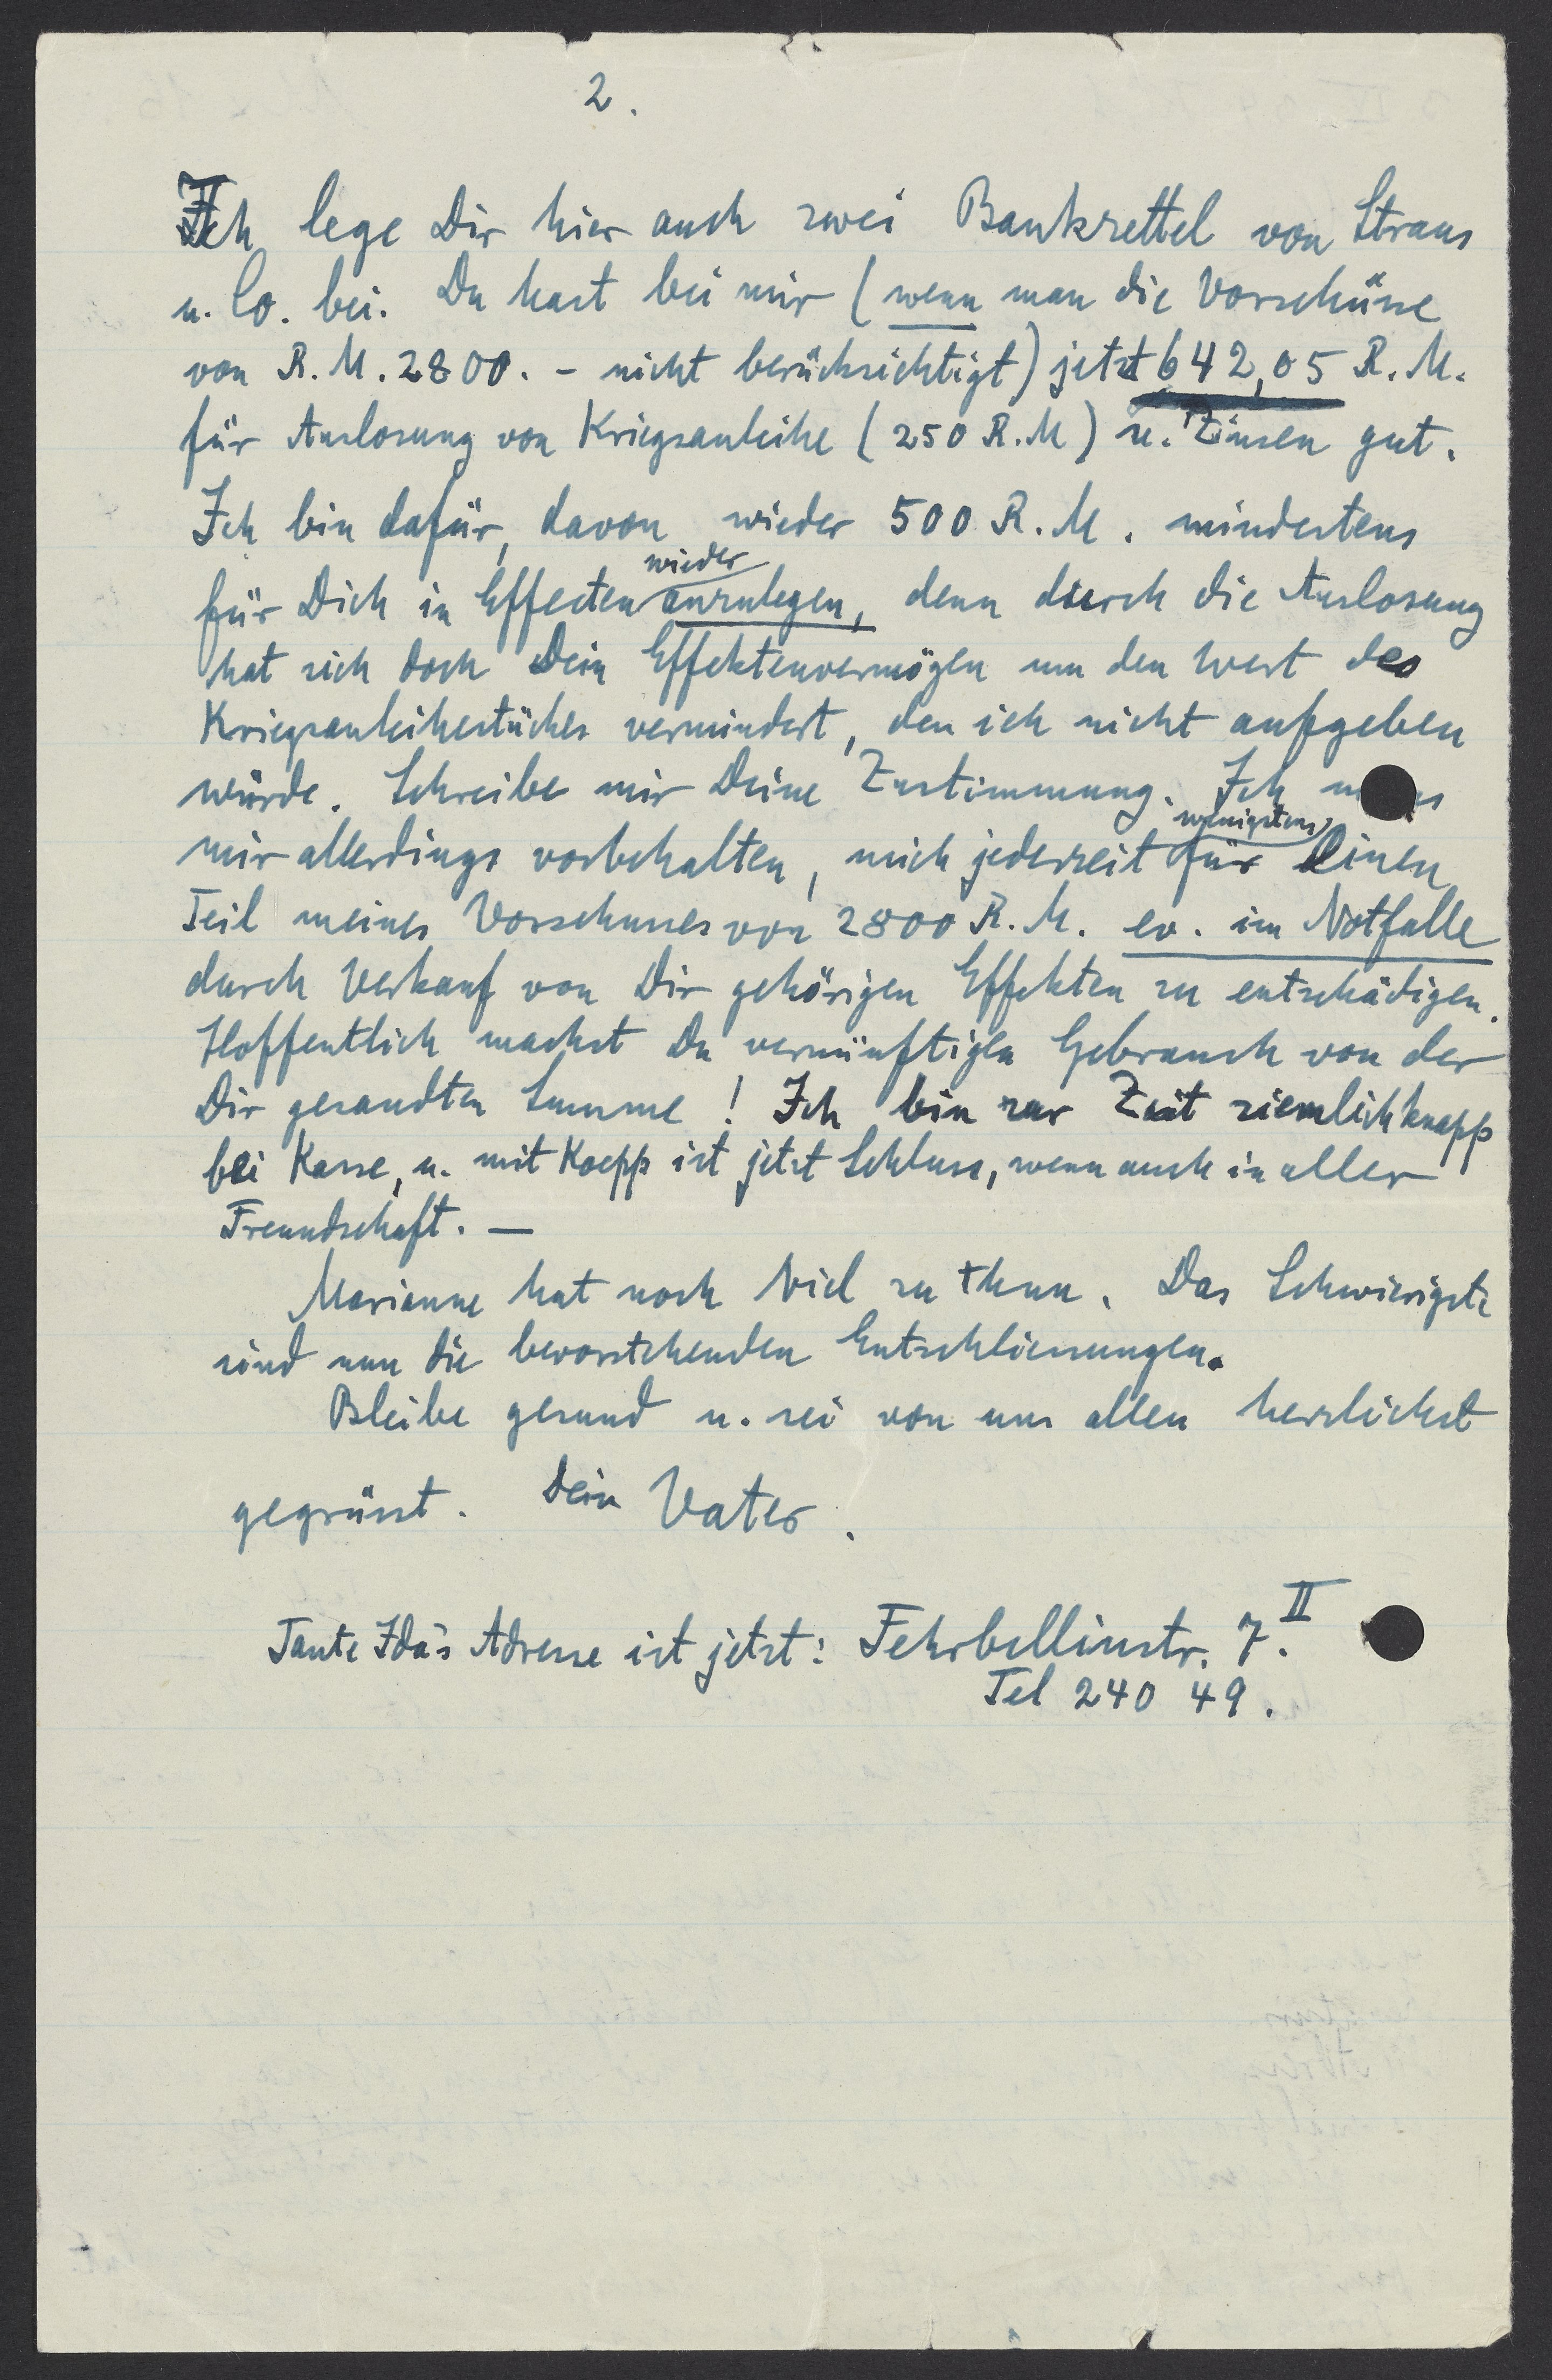 2.
Ich lege Dir hier auch zwei Bankzettel von Straus
u. Co. bei. Du hast bei mir (wenn man die Vorschüsse
von R. M. 2800. - nicht berücksichtigt) jetzt 642,05 R. M.
für Auslosung von Kriegsanleihe (250 R. M) u. Zinsen gut.
Ich bin dafür, davon wieder 500 R. M. mindestens
wieder
für Dich in Effecten anzulegen, denn durch die Auslosung
hat sich doch Dein Effektenvermögen um den Wert des
Kriegsanleihestückes vermindert, den ich nicht aufgeben
würde. Schreibe mir Deine Zustimmung. Ich
wenigstens
mir allerdings vorbehalten, mich jederzeit für einen
Teil meines Vorschusses von 2800 R. M. ev. im Notfalle
durch Verkauf von Dir gehörigen Effekten zu entschädigen.
Hoffentlich machst Du vernünftigen Gebrauch von der
Dir gesandten Summe! Ich bin zur Zeit ziemlich knapp
bei Kasse, u. mit Koepp ist jetzt Schluss, wenn auch in aller
Freundschaft. —
Marianne hat noch viel zu thun. Das Schwierigste
sind nun die bevorstehenden Entschliessungen.
Bleibe gesund u. sei von uns allen herzlichst
gegrüsst. Dein Vater.
Tante Ida's Adresse ist jetzt: Fehrbellinstr. 7. II
Tel 240 49.